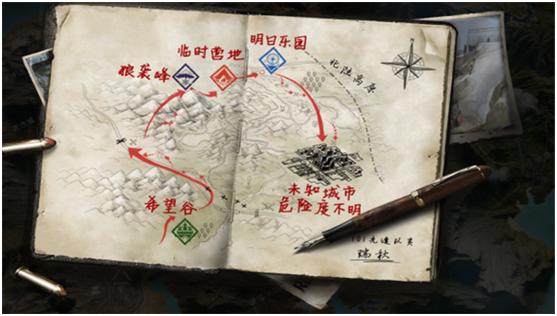 明日乐园
临时营地
狼袭峰
北陆高原
希望谷
未知城市
危险度不明
101先遣队员
瑞秋